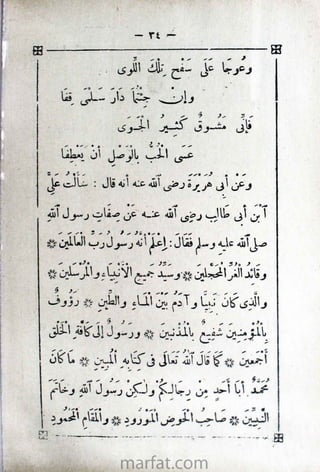 — ٣٤ —
وَعُوجَا عَلَى سَفْحِ تِلْكَ اللِّوَى
وَإِنْ جِئْتُمَا دَارَ سَلْمَى قِفَا
فَإِنِّي مَشُوقٌ كَثِيرُ الْجَوَى
عَسَى الْحُبُّ بِالْوَصْلِ أَنْ يَعْطِفَا
وَعَنْ أَبِي هُرَيْرَةَ رضى الله عنه أنه قال : سَأَلْتُ عَلِيَّ
ٱبْنَ أَبِي طَالِبٍ رضى الله عنه عَنْ صِفَاتِ رسول الله
صلى الله عليه وسلم فَقَالَ : إِعْلَمْ أَنَّهُ رَسُولُ رَبِّ الْعَالَمِينَ ❊
وَقَائِدُ الْغُرِّ الْمُحَجَّلِينَ ❊ وَسَيِّدُ جَمِيعِ الْأَنْبِيَاءِ وَالْمُرْسَلِينَ ❊
وَالَّذِي كَانَ نَبِيًّا وَآدَمُ بَيْنَ الْمَاءِ وَالطِّينِ ❊ رَؤُوفٌ
بِالْمُؤْمِنِينَ شَفِيعٌ بِالْمُذْنِبِينَ ❊ وَرَسُولٌ إِلَى كَافَّةِ الْخَلْقِ
أَجْمَعِينَ ❊ كَمَا قَالَ اللهُ تَعَالَى فِي كِتَابِهِ الْمُبِينِ ❊ مَا كَانَ
مُحَمَّدٌ أَبَا أَحَدٍ مِنْ رِجَالِكُمْ وَلٰكِنْ رَسُولَ اللهِ وَخَاتَمَ
النَّبِيِّينَ ❊ صَاحِبُ الْحَوْضِ الْمَوْرُودِ ❊ وَالْمَقَامِ الْمَحْمُودِ
marfat.com